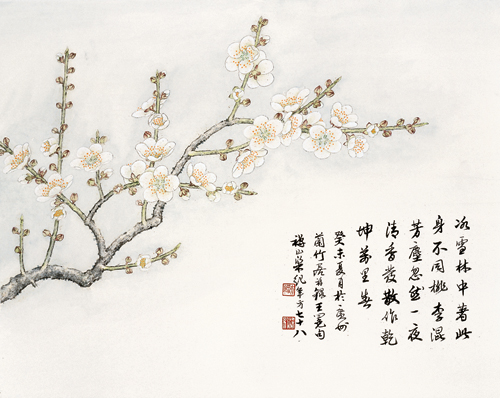 冰雪林中著此
身不同桃李混
芳塵忽然一夜
清香發散作乾
坤萬里春
癸未夏月於廣州
蘭竹居錄王冕句
禪山梁紀年方七十八